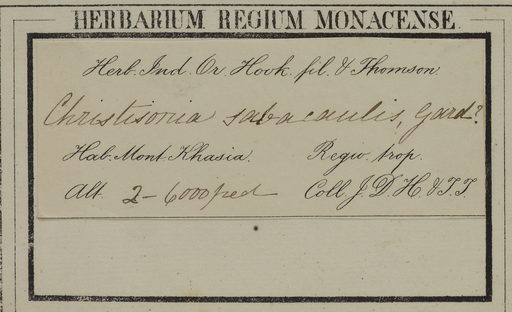 HERBARIUM REGIUM MONACENSE.
Herb. Ind. Or. Hook. fil. & Thomson.
Christisonia subacaulis, Gard?
Hab. Mont Khasia. Regio trop.
Alt. 2-6000 ped Coll. J. D. H. & T. T.